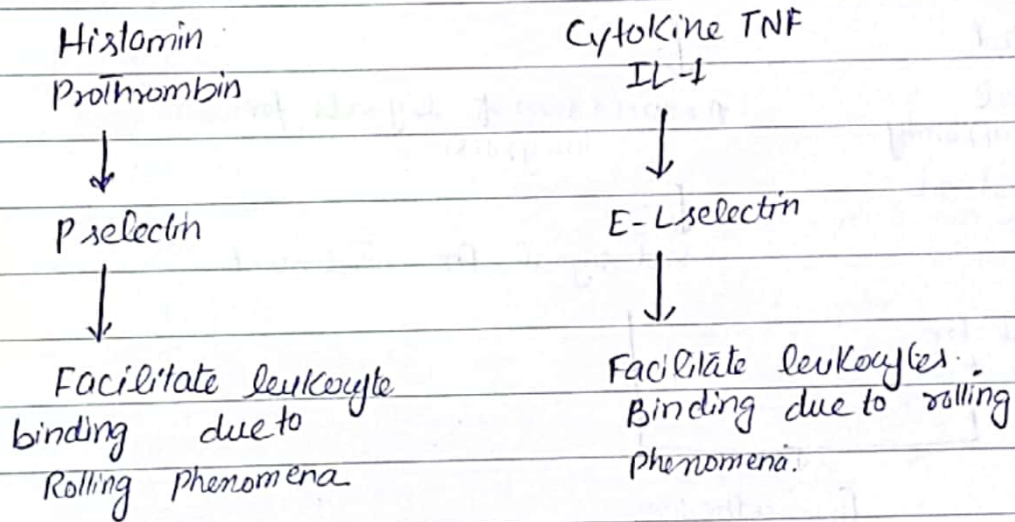 Histamin
Prothrombin
P selectin
Facilitate leukocyte
binding due to
Rolling Phenomena
Cytokine TNF
IL-1
E-Lselectin
Facilitate leukocytes.
Binding due to rolling
phenomena.